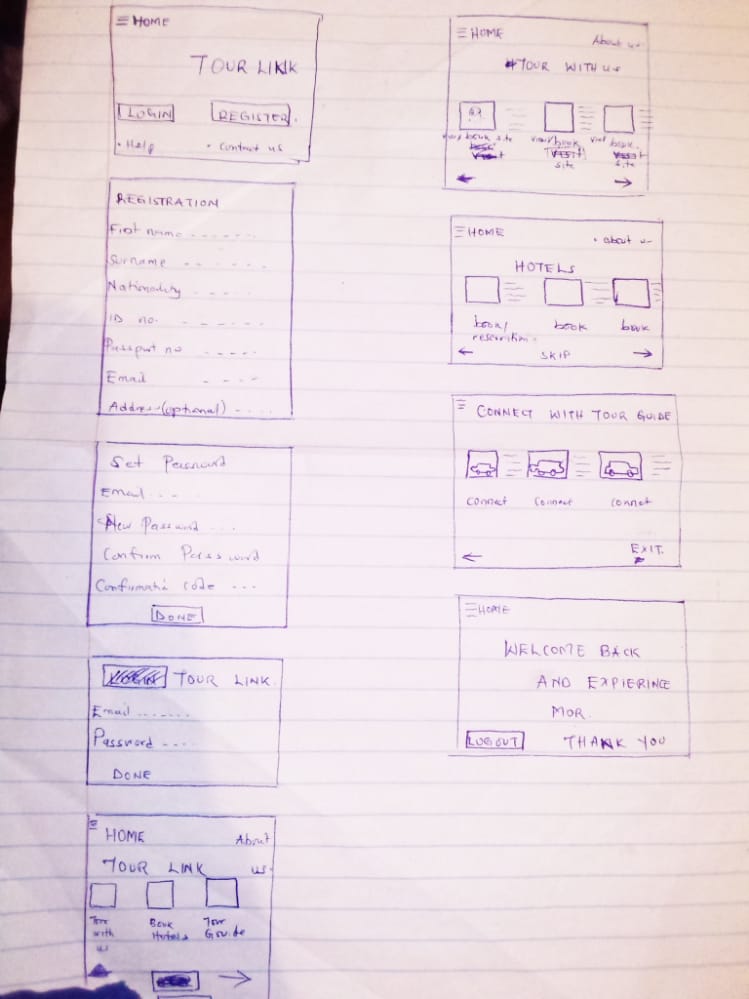 HOME
TOUR LINK
LOGIN
REGISTER.
• Help
• contact us
REGISTRATION
First name
Surname
Nationality
ID no.
Passport no
Email
Address (optional)
Set Password
Email
New Password
Confirm Password
Confirmatn code
DONE
TOUR LINK.
Email
Password
DONE
HOME
About us.
TOUR LINK
Tour with us
Book Hotels
Tour Guide
HOME
About us
TOUR WITH us
view/book site
view/book site
book site
HOME
• about us
HOTELS
book/ reservation.
book
book
SKIP
CONNECT WITH TOUR GUIDE
connect
Connect
connect
EXIT.
HOME
WELCOME BACK
AND EXPIERINCE
MOR.
LOGOUT
THANK YOU